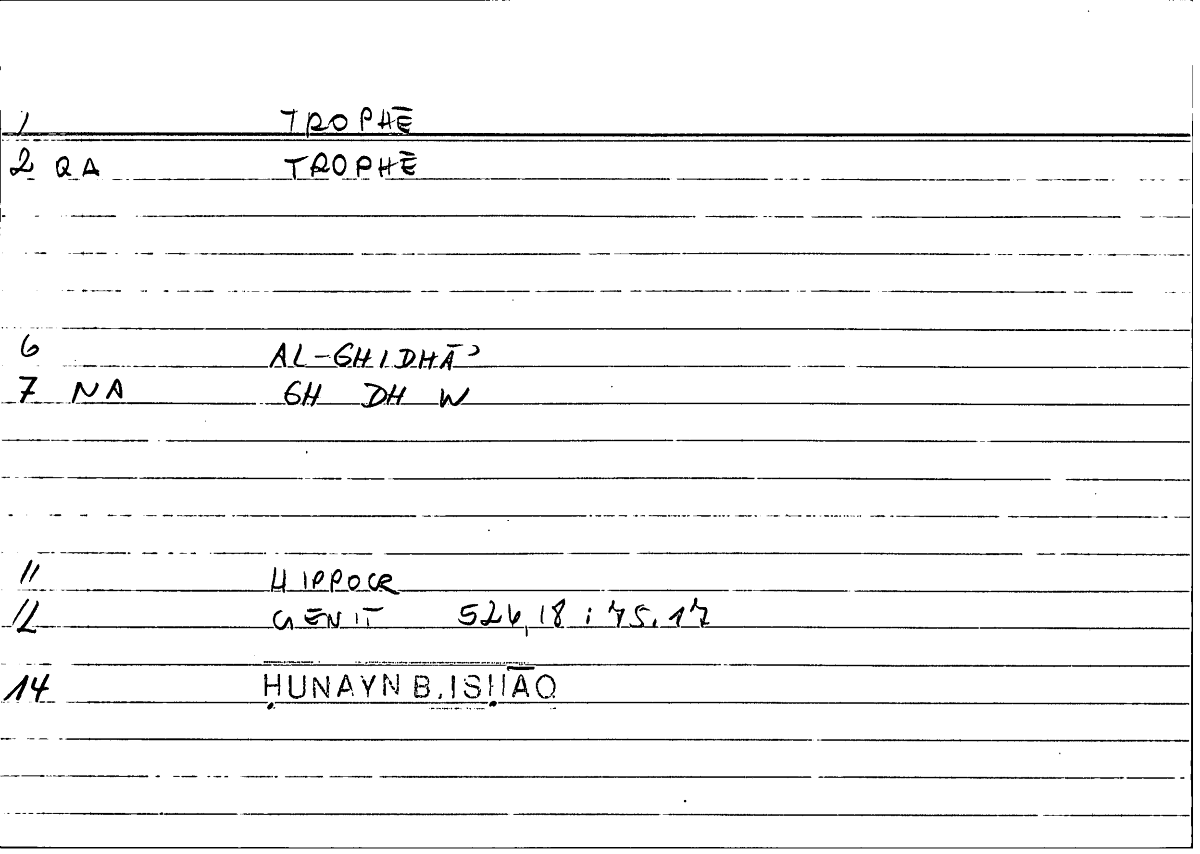 1 TROPHĒ
2 QA TROPHĒ
6 AL-GHIDHĀʾ
7 NA GH DH W
11 HIPPOCR
12 GENIT 526,18 : 75.17
14 ḤUNAYN B. ISḤĀQ